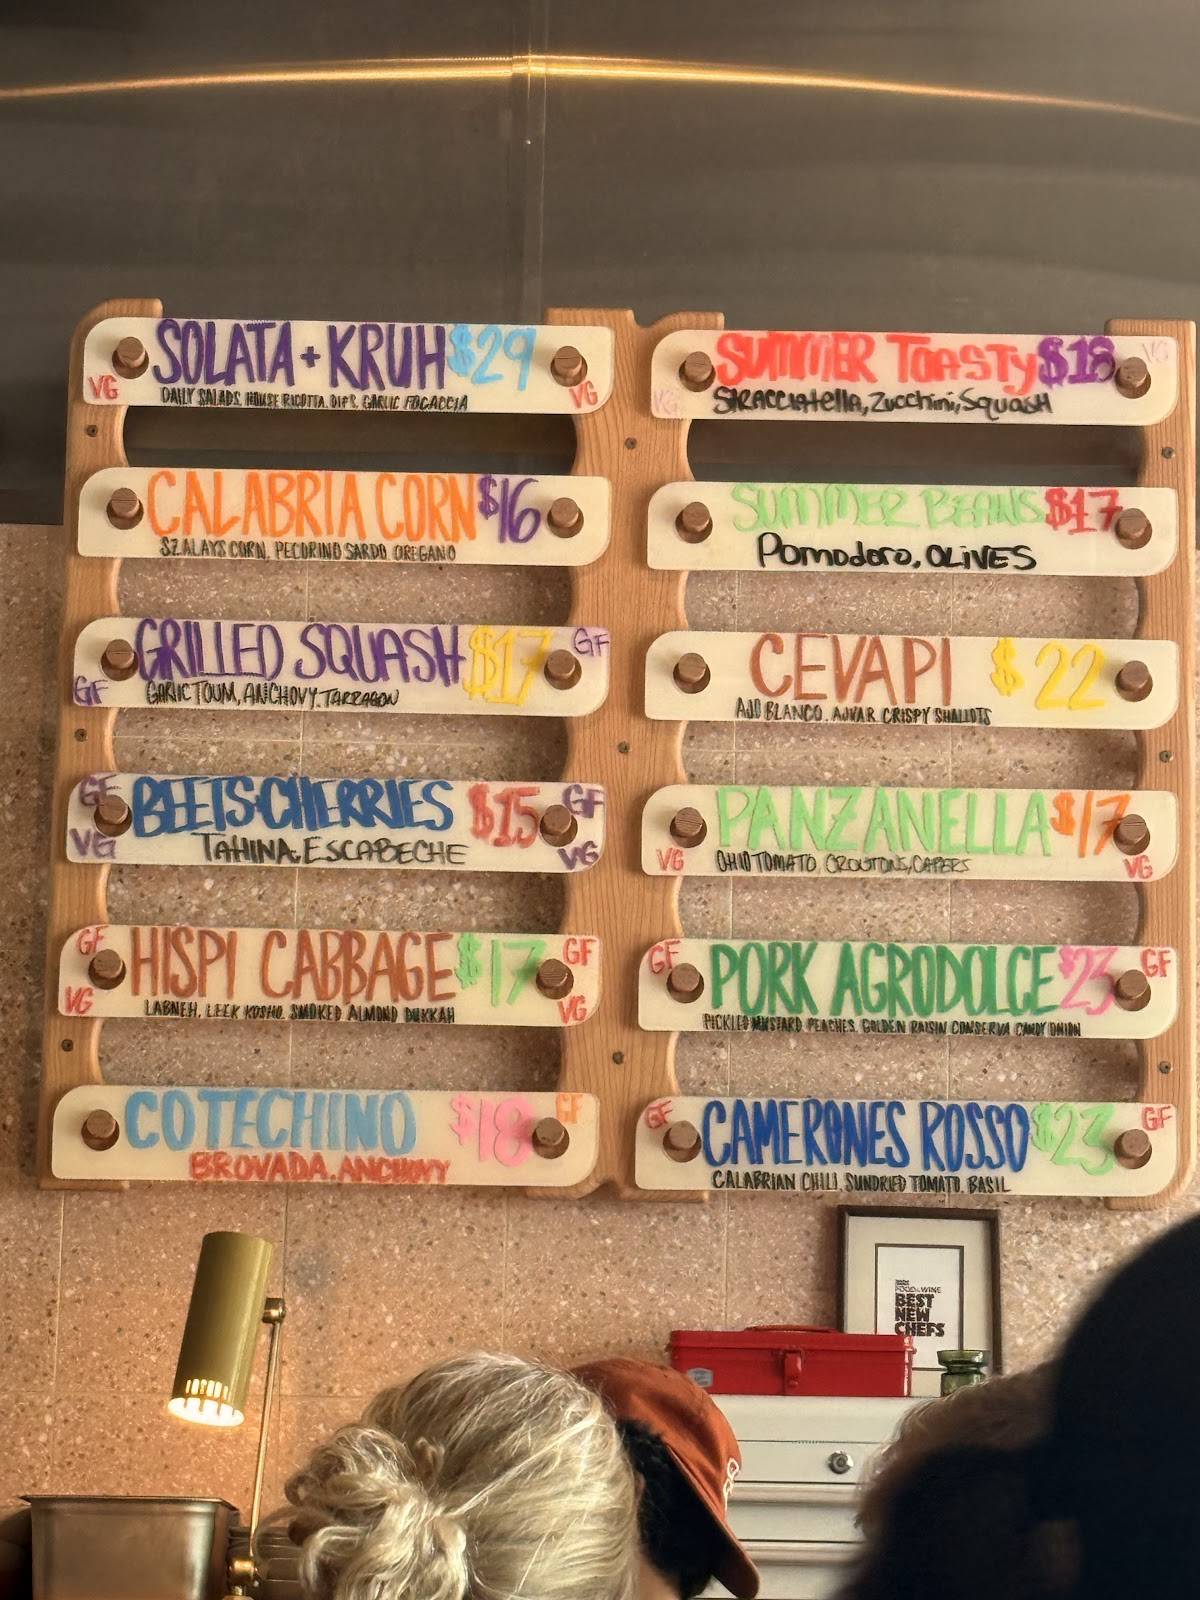 SOLATA + KRUH $29
VG DAILY SALADS, HOUSE RICOTTA, DIPS, GARLIC FOCACCIA VG
CALABRIA CORN $16
SZALAYS CORN, PECORINO SARDO, OREGANO
GRILLED SQUASH $17 GF
GF GARLIC TOUM, ANCHOVY, TARRAGON
GF BEETS+CHERRIES $15 GF
VG TAHINA, ESCABECHE VG
GF HISPI CABBAGE $17 GF
VG LABNEH, LEEK KOSHO, SMOKED ALMOND DUKKAH VG
COTECHINO $18 GF
BROVADA, ANCHOVY
SUMMER TOASTY $18 VG
VG STRACCIATELLA, ZUCCHINI, SQUASH
SUMMER BEANS $17
Pomodoro, OLIVES
CEVAPI $22
AJO BLANCO, AJVAR, CRISPY SHALLOTS
PANZANELLA $17
VG OHIO TOMATO, CROUTONS, CAPERS VG
GF PORK AGRODOLCE $23 GF
PICKLED MUSTARD PEACHES, GOLDEN RAISIN CONSERVA CANDY ONION
GF CAMERONES ROSSO $23 GF
CALABRIAN CHILI, SUNDRIED TOMATO, BASIL
FOOD & WINE
BEST
NEW
CHEFS